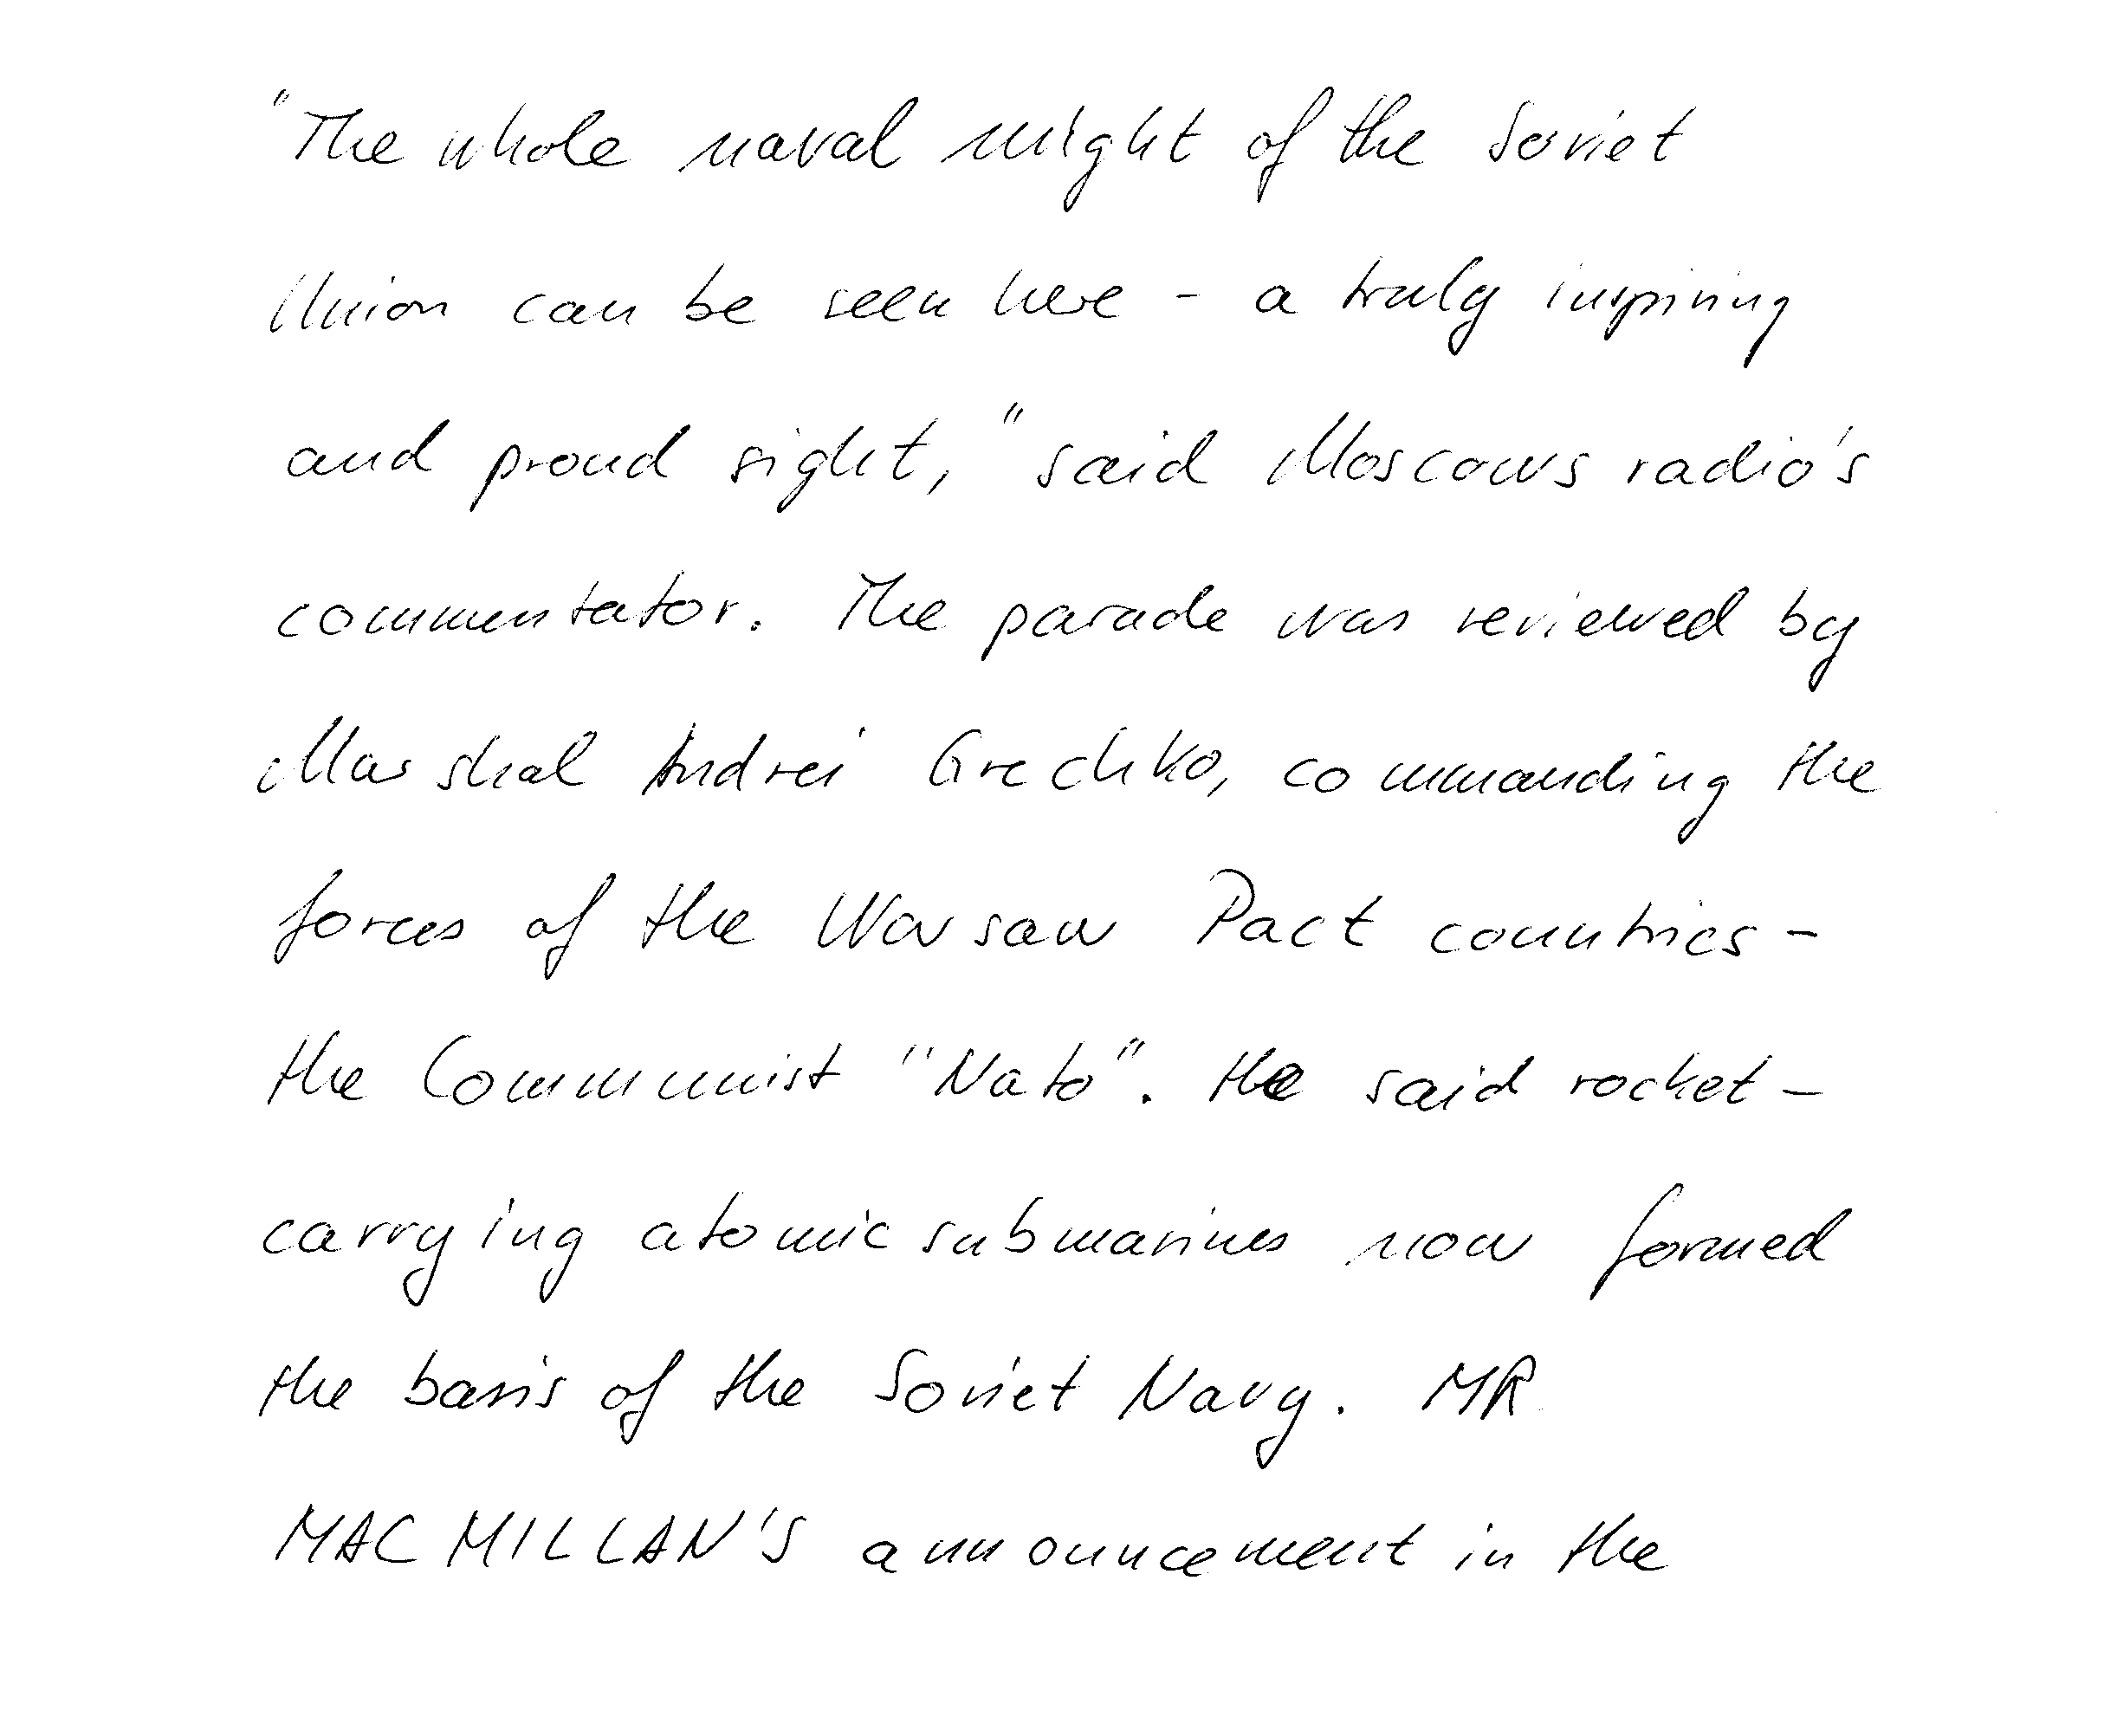 "The whole naval might of the Soviet
Union can be seen here - a truly inspiring
and proud sight," said Moscows radio's
commentator. The parade was reviewed by
Marshal Andrei Grechko, commanding the
forces of the Warsaw Pact countries -
the Communist "Nato". He said rocket-
carrying atomic submarines now formed
the basis of the Soviet Navy. MR
MACMILLAN'S announcement in the